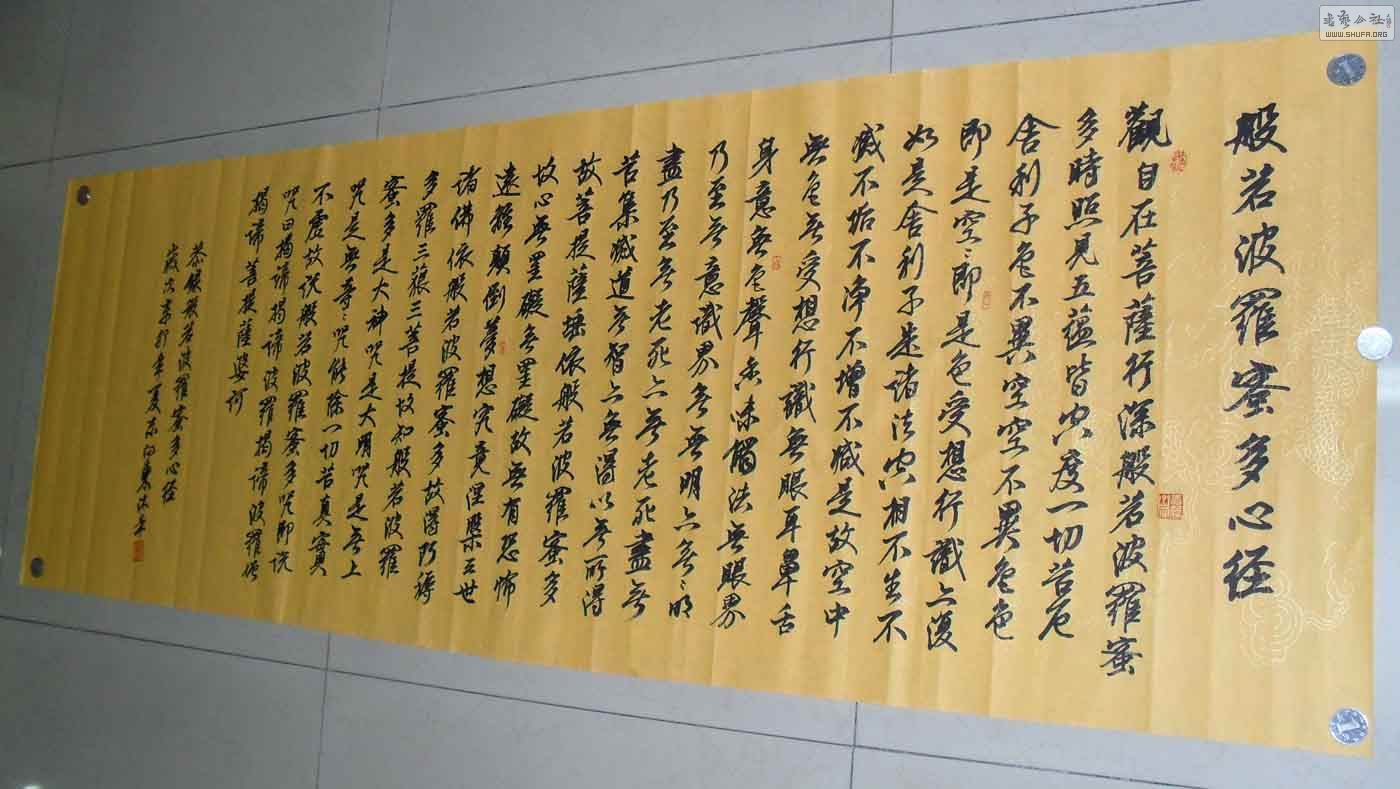 般若波羅蜜多心径
觀自在菩薩行深般若波羅蜜
多時照見五蘊皆空度一切苦厄
舍利子色不異空空不異色色
即是空〻即是色受想行識亦復
如是舍利子是諸法空相不生不
滅不垢不净不增不减是故空中
無色无受想行識無眼耳鼻舌
身意無色聲香味觸法無眼界
乃至无意識界无無明亦無〻明
盡乃至無老死亦無老死盡無
苦集滅道无智亦無得以無所得
故菩提薩埵依般若波羅蜜多
故心無罣礙無罣礙故無有恐怖
遠離顛倒夢想究竟涅槃三世
諸佛依般若波羅蜜多故得阿耨
多羅三藐三菩提故知般若波羅
蜜多是大神咒是大明咒是無上
咒是無等〻咒能除一切苦真實
不虛故说般若波羅蜜多咒即说
咒曰揭谛揭谛波羅揭谛波羅僧
揭谛菩提薩婆訶
恭録般若波羅蜜多心径
歲次年夏
書艺公社
WWW.SHUFA.ORG